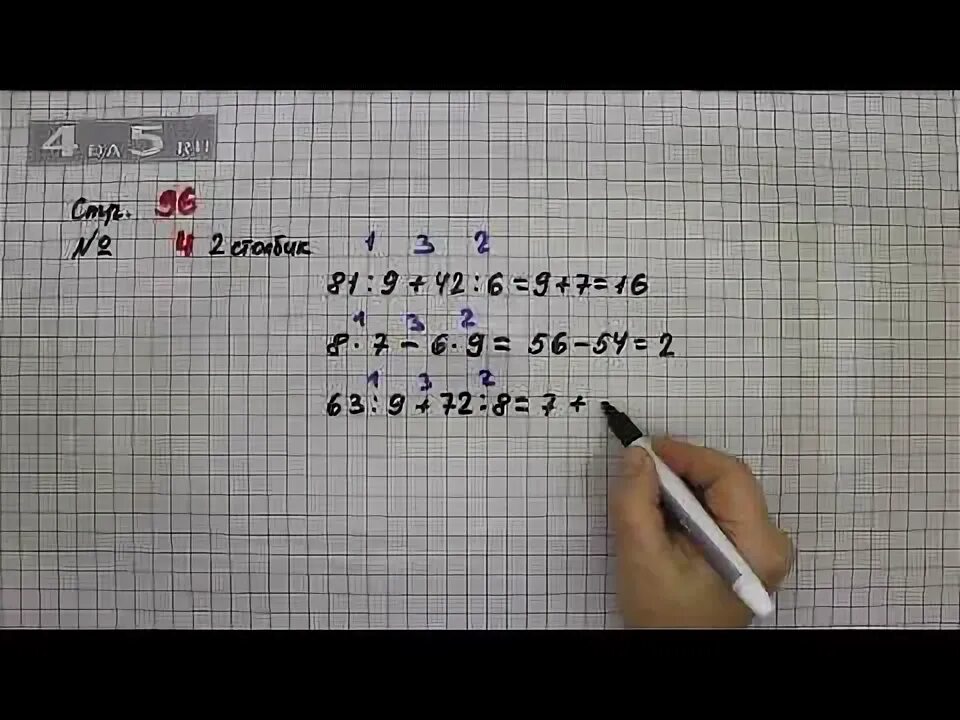 4 на 5.RU
Стр. 96
№ 4 2 столбик
1 3 2
81:9+42:6=9+7=16
1 3 2
8·7-6·9=56-54=2
1 3 2
63:9+72:8=7+